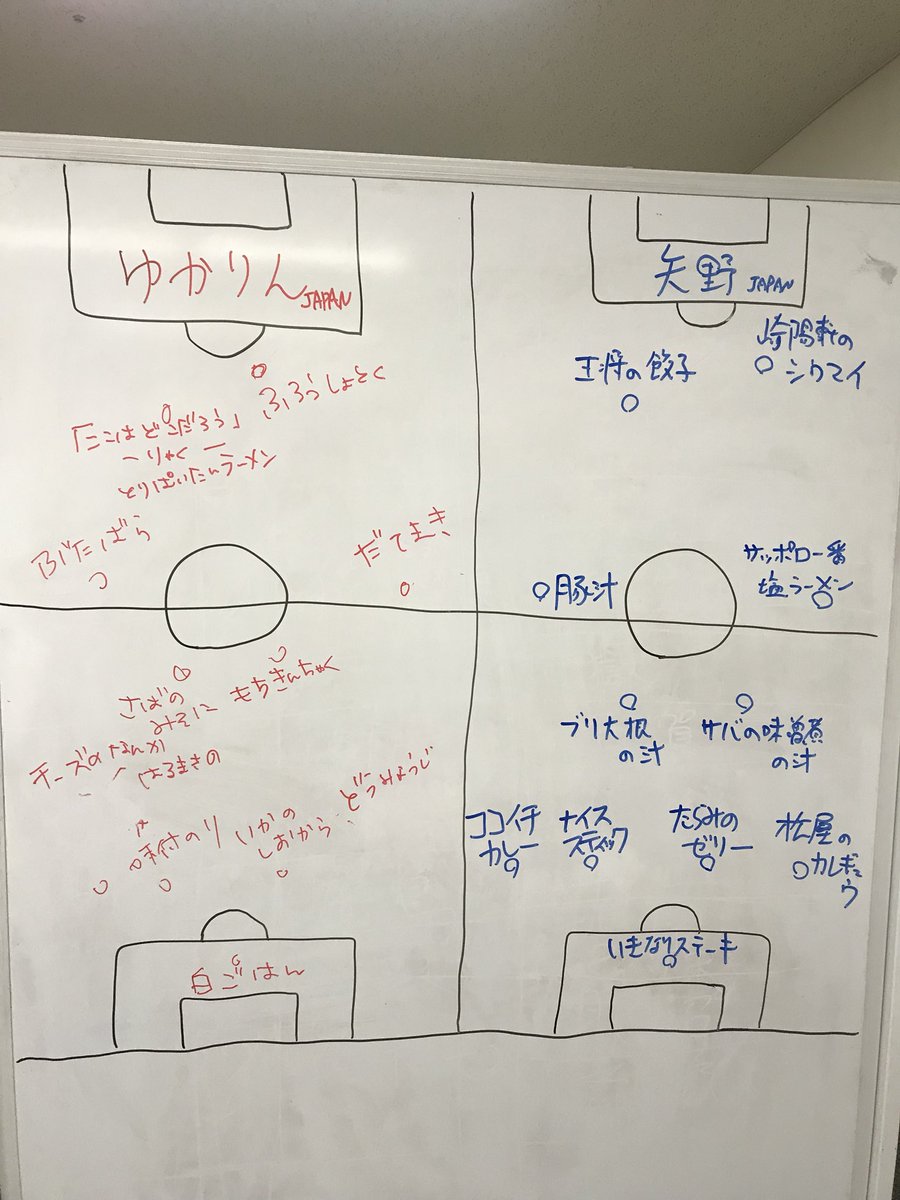 ゆかりん JAPAN
ふろうしょとく
「ここはどこだろう」
ーりゃくー
とりぱいたんラーメン
ぶたばら
だてまき
さばの
みそに
もちきんちゃく
チーズの
はるまきの
味付のり
いかの
しおから
どうみょうじ
白ごはん
矢野 JAPAN
王将の餃子
崎陽軒の
シウマイ
豚汁
サッポロ一番
塩ラーメン
ブリ大根
の汁
サバの味噌煮
の汁
ココイチ
カレー
ナイス
スティック
たらみの
ゼリー
松屋の
カルギュウ
いきなりステーキ